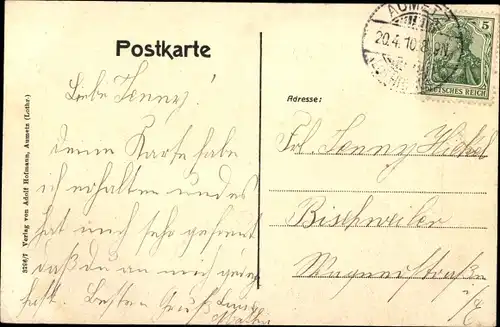 Postkarte
AUMETZ
20.4.10.
5
DEUTSCHES REICH
Adresse:
Liebe Jenny!
deine Karte habe
ich erhalten und es
hat mich sehr gefreut
daß du an mich
Besten Gruß
Frl. Jenny Hickel
Bischweiler
Wagnerstraße
i/E
3266/7 Verlag von Adolf Hofmann, Aumetz (Lothr.)